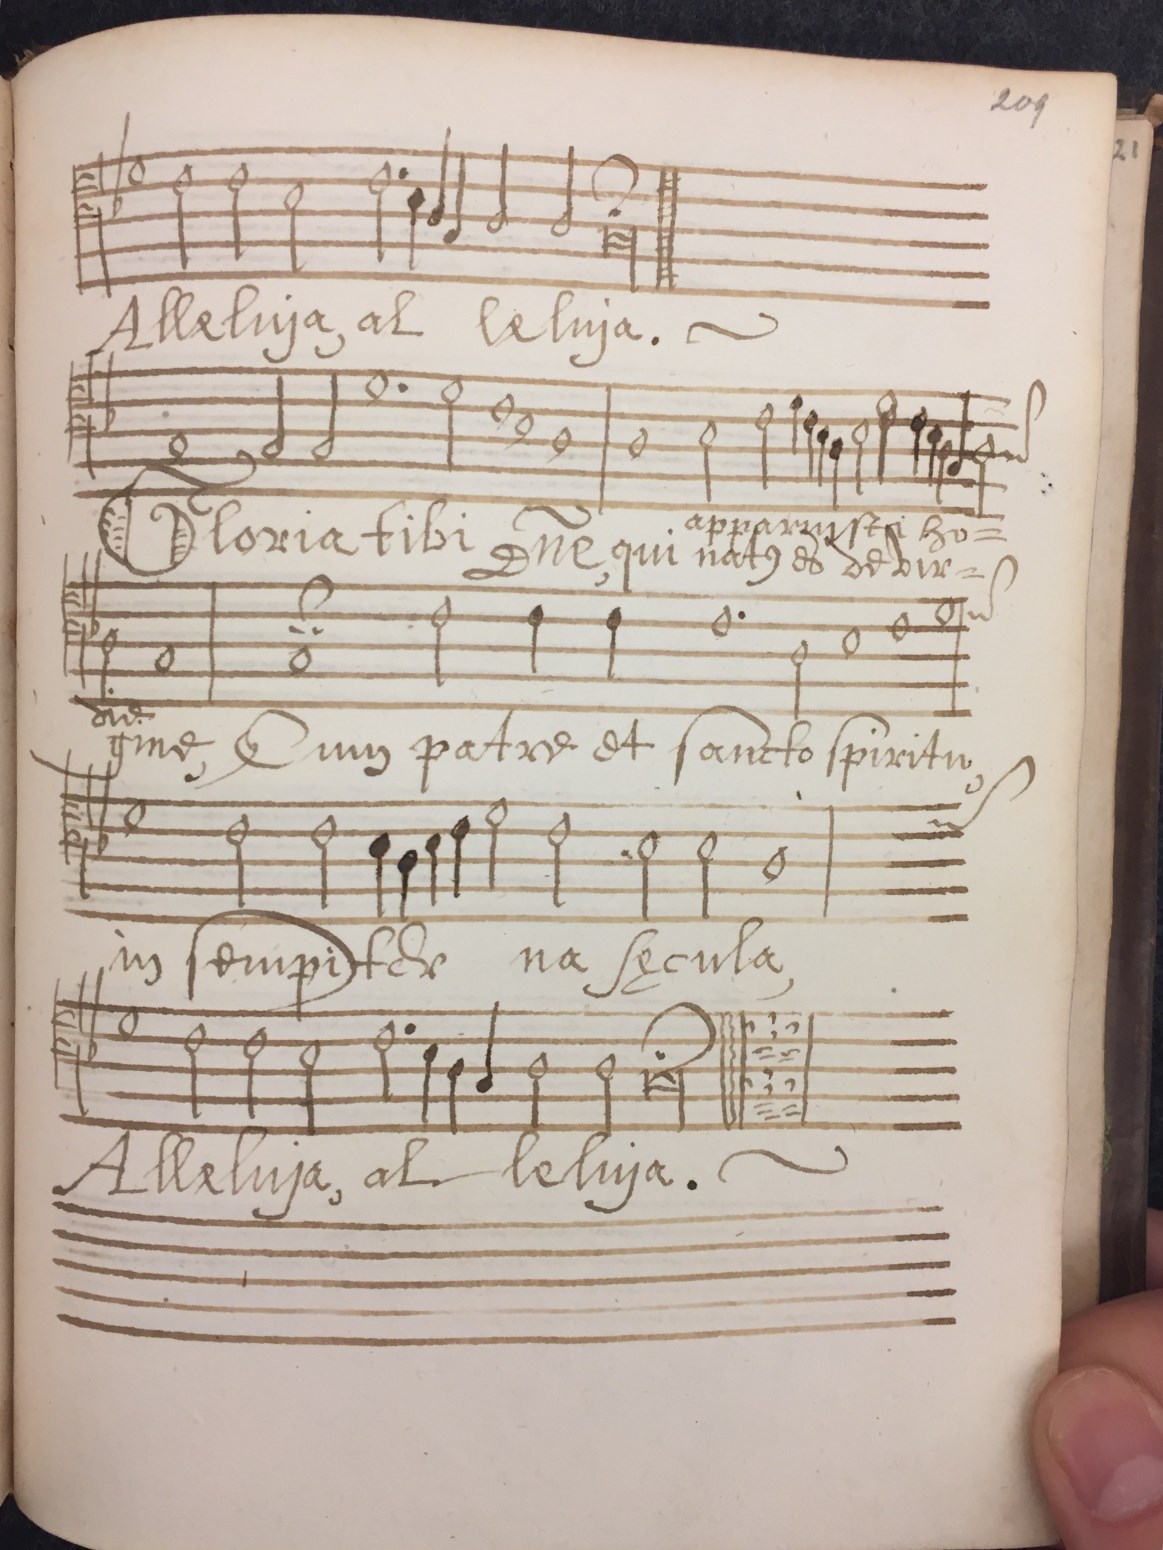 209
21
Alleluja, al leluja.
apparuisti ho=
Gloria tibi Dne, qui natꝰ es de vir=
die
gine, Cum patre et sancto spiritu,
in sempiter na sęcula,
Alleluja, al leluja.